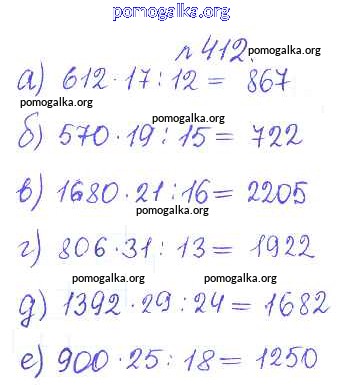 pomogalka.org
№ 412.
pomogalka.org
а) 612 · 17 : 12 = 867
pomogalka.org
pomogalka.org
б) 570 · 19 : 15 = 722
в) 1680 · 21 : 16 = 2205
pomogalka.org
г) 806 · 31 : 13 = 1922
pomogalka.org pomogalka.org
д) 1392 · 29 : 24 = 1682
pomogalka.org
е) 900 · 25 : 18 = 1250